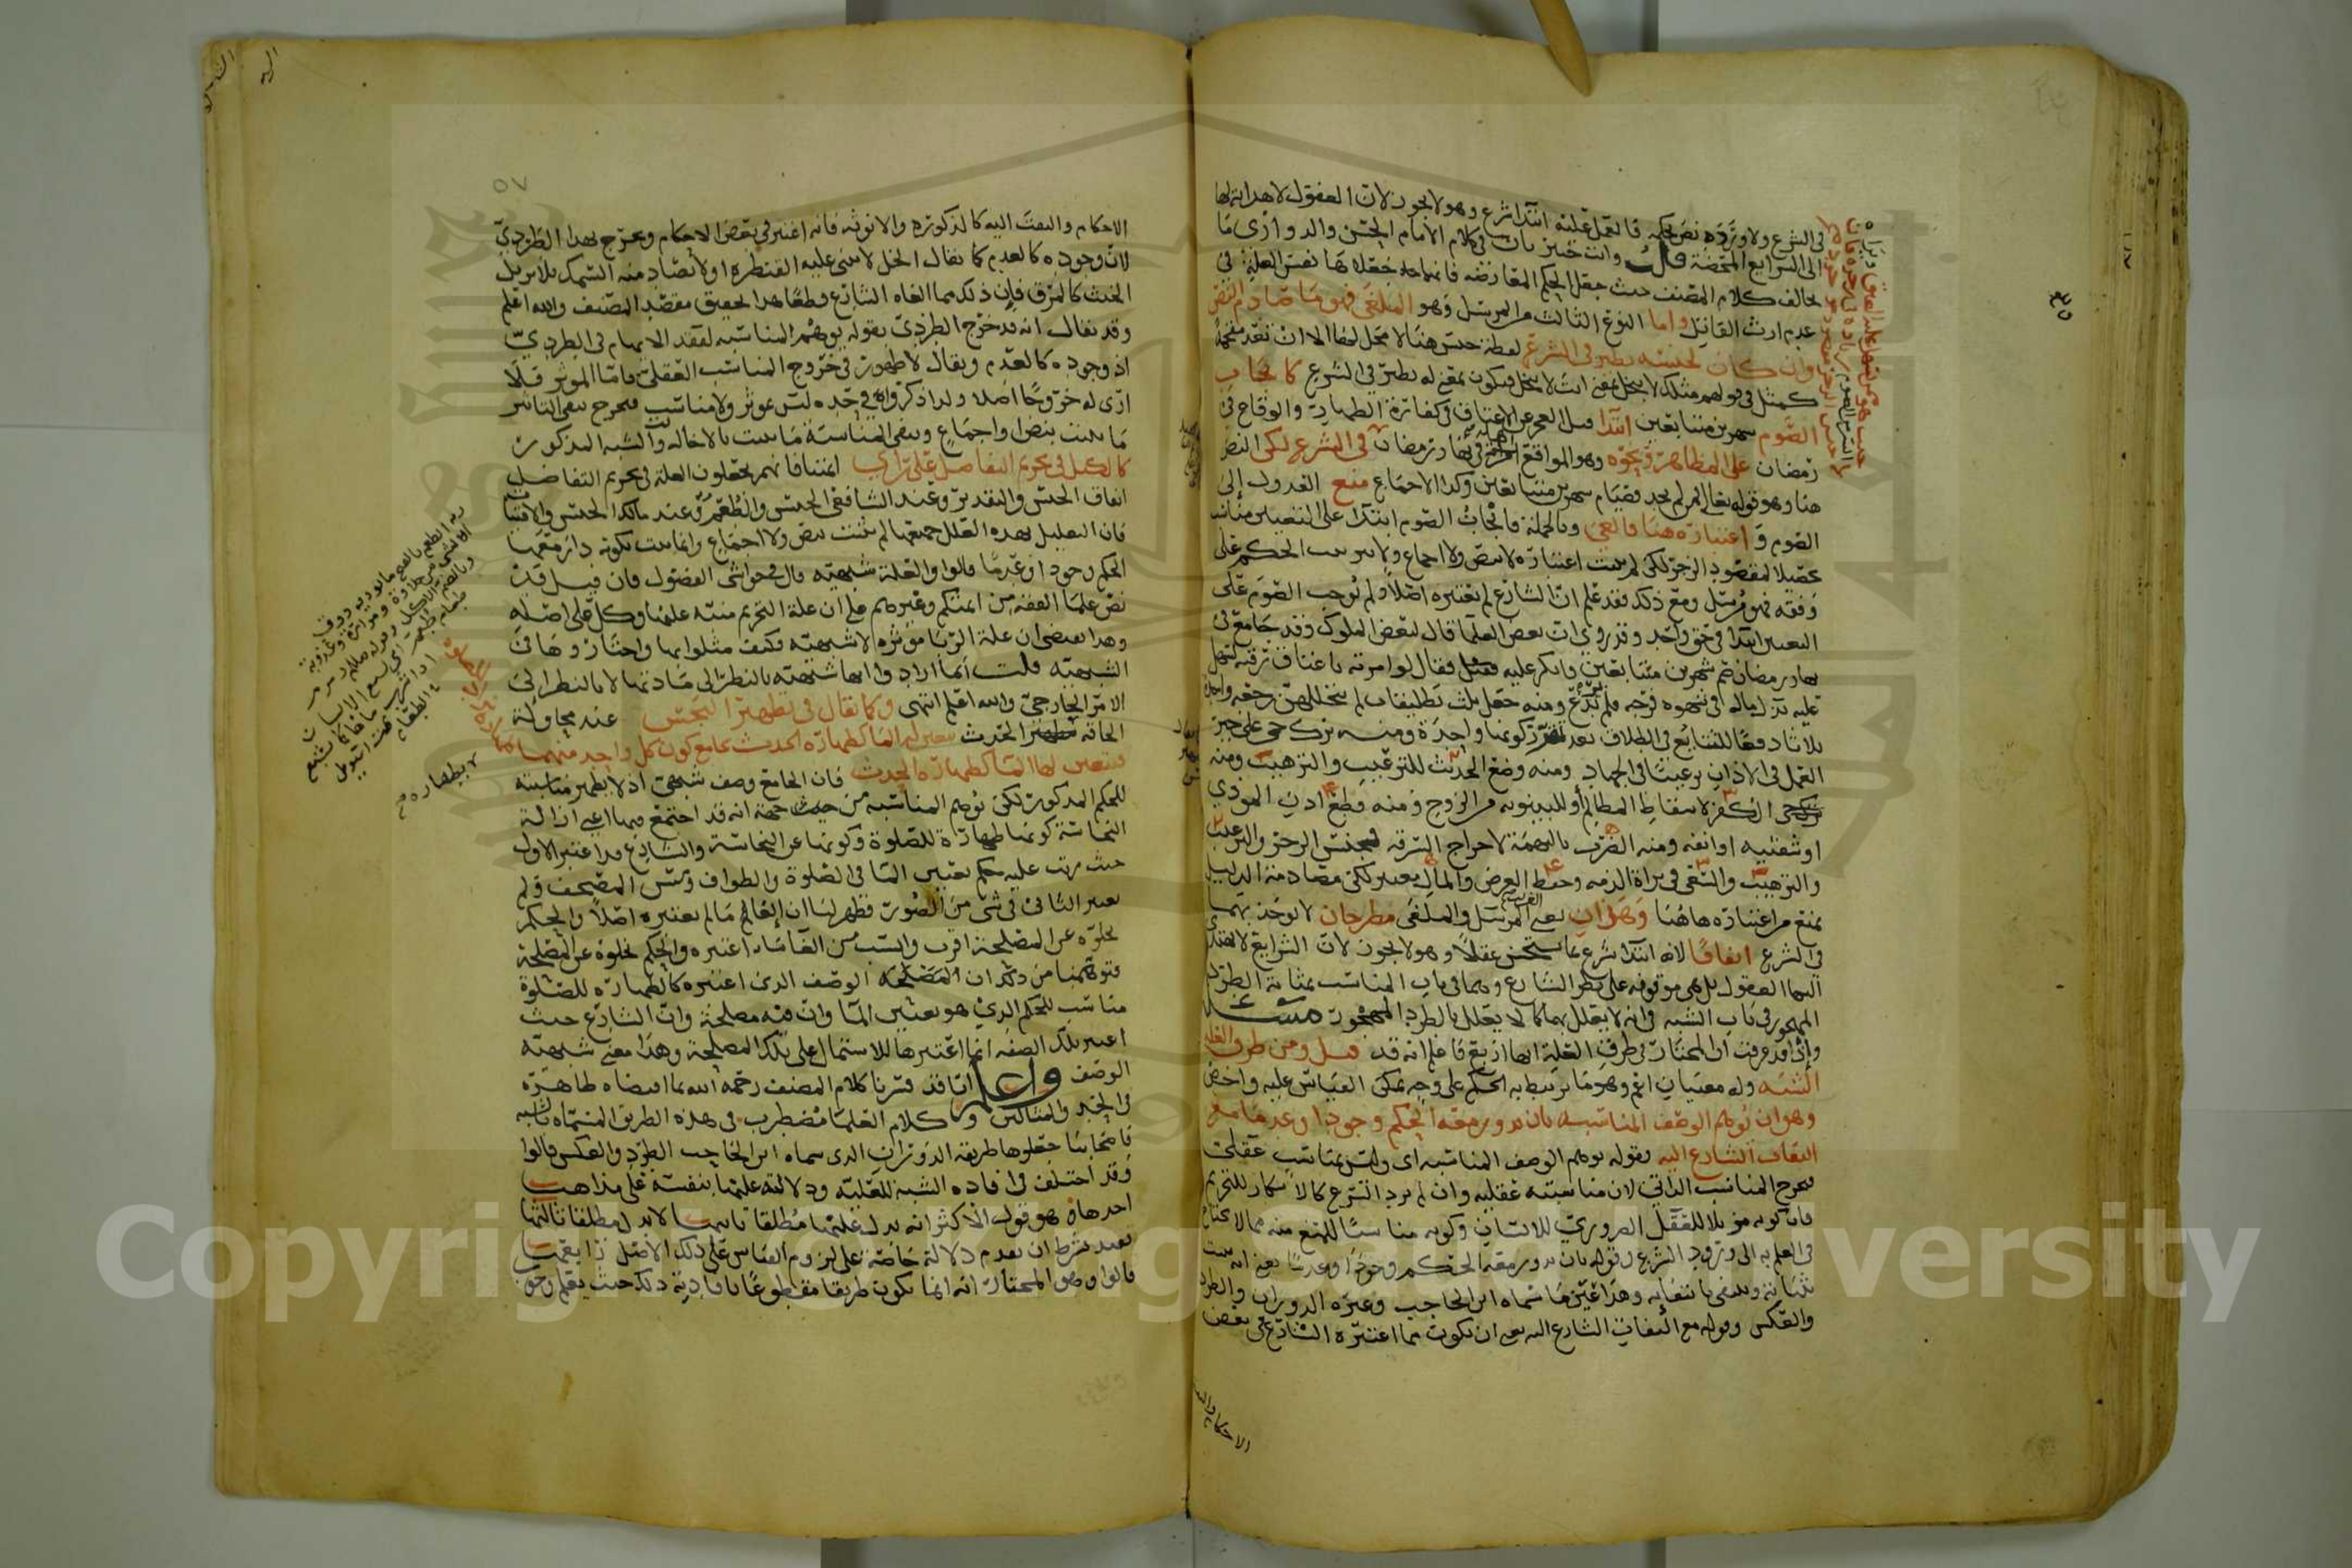 في الشرع ولا ورده نص بحكمه فالعمل عليه ابتدا شرع وهو لا يجوز لان العقول لا هداية لها
الى الشرايع المحضة قال وانت خبير بان في كلام الامام الحسن والدواري ما
يخالف كلام المصنف حيث جعل الحكم المعارضه فانهما جعلاها نفس العلة في
عدم ارث القاتل واما النوع الثالث من المرسل وهو الملغى فهو ما صادم النص
وان كان لجنسه نظير في الشرع لفظة جنس هنا لا محل لها الا ان تعد مقحمة
كمثل في قولهم مثلك لا يبخل بمعنى انت لا تبخل فيكون بمعنى له نظير في الشرع كايجاب
الصوم شهرين متتابعين ابتدا قبل العجز عن الاعتاق في كفارة الظهار والوقاع في
رمضان على المظاهر ونحوه وهو المواقع في نهار رمضان في الشرع لكن النص
هنا وهو قوله تعالى فمن لم يجد فصيام شهرين متتابعين وكذا الاجماع منع العدول الى
الصوم و اعتباره هنا فالغي وبالجملة فايجاب الصوم ابتدا على التعيين مناسب
تحصيلا لمقصود الزجر لكن لم يثبت اعتباره لا بنص ولا اجماع ولا بترتيب الحكم على
وفقه فهو مرسل ومع ذلك فقد علم ان الشارع لم يعتبره اصلا ولم يوجب الصوم على
التعيين ابتدا في حق واحد وقد روي ان بعض العلما قال لبعض الملوك وقد جامع في
نهار رمضان صم شهرين متتابعين فانكر عليه فقال لو امرته باعتاق رقبة لسهل
عليه بذل ماله في شهوة فرجه فلم يرتدع ومنه جعل ثلث تطليقات لم يتخللهن رجعة واحدة
ثلاثا دفعا للتتابع في الطلاق بعد تقرر كونها واحدة ومنه ترك حي على خير
العمل في الاذان ترغيبا في الجهاد ومنه وضع الحديث للترغيب والترهيب ومنه
الكفر لاسقاط المظالم او للبينونة من الزوج ومنه قطع اذن الموذي
او شفتيه او انفه ومنه الضرب بالتهمة لاخراج السرقة فجنس الزجر والترغيب
والترهيب والسعي في براة الذمه وحفظ العرض والمال يعتبر لكن مصادمة الدليل
يمنع من اعتباره هاهنا وهذان يعني المرسل والملغى مطرحان لا يوخذ بهما
في الشرع اتفاقا لانه ابتدا شرع بما يستحسن عقلا وهو لا يجوز لان الشرايع لا تهتدي
اليها العقول بل هي موقوفه على نظر الشارع وهما في باب المناسب بمثابة الطرد
المهجور في باب الشبه في انه لا يعلل بهما كما لا يعلل بالطرد المهجور مسئلة
واذا قد عرفت ان المختار في طرق العلة انها اربع فاعلم انه قد قيل ومن طرق العلة
الشبه وله معنيان اعم وهو ما يرتبط به الحكم على وجه يمكن القياس عليه واخص
وهو ان يوهم الوصف المناسبه بان يدور معه الحكم وجودا وعدما مع
التفات الشارع اليه بقوله يوهم الوصف المناسبه اى وليس بمناسب عقلي
فيخرج المناسب الذاتي لان مناسبته عقليه وان لم يرد الشرع كالاسكار للتحريم
فان كونه مزيلا للعقل الضروري للانسان وكونه مناسبا للمنع منه مما لا يحتاج
في العلم به الى ورود الشرع وقوله بان يدور معه الحكم وجودا وعدما يعني انه يثبت
بثباته وينتفي بانتفائه وهذا عين ما سماه ابن الحاجب وغيره الدوران والطرد
والعكس وقوله مع التفات الشارع اليه يعني ان يكون مما اعتبره الشارع في بعض
الاحكام والتفت
٥٧
الاحكام والتفت اليه كالذكورة والانوثة فانه اعتبر في بعض الاحكام ويخرج بهذا الطردي
لان وجوده كالعدم كما يقال الخل لا تبنى عليه القنطرة او لا يصاد منه السمك فلا يزيل
الخبث كالمرق فان ذلك مما الغاه الشارع قطعا هذا تحقيق مقصد المصنف والله اعلم
وقد يقال انه قد خرج الطردي بقوله يوهم المناسبه لفقد الايهام في الطردي
اذ وجوده كالعدم ويقال لا ظهور في خروج المناسب العقلي فاما الموثر فلا
ارى له خروجا اصلا ولذا ذكروا في حده ليس بموثر ولا مناسب فيخرج بنفي التاثير
ما يثبت بنص او اجماع وبنفي المناسبة ما يثبت بالاخاله والشبه المذكور
كالكيل في تحريم التفاضل على راي ائمتنا فانهم يجعلون العلة في تحريم التفاضل
اتفاق الجنس والتقدير وعند الشافعي الجنس والطعم وعند مالك الجنس والاقتيات
فان التعليل بهذه العلل جميعها لم يثبت بنص ولا اجماع وانما يثبت بكونه دار معها
الحكم وجودا وعدما قالوا والعلة شبهيه قال في حواشي الفصول فان قيل قد
نص علما الفقه من ائمتكم وغيرهم على ان علة التحريم منبه عليها وكل على اصله
وهذا يقتضي ان علة الربا موثره لا شبهيه فكيف مثلوا بها واختار وها في
الشبهيه قلت انما ارادوا انها شبهيه بالنظر الى مادتها لا بالنظر الى
الامر الخارجي والله اعلم انتهى وكما يقال في تطهير النجس عند محاولة
الحاقه بطهر الحدث فيتعين لها الما كطهارة الحدث بجامع كون كل واحد منهما
فيتعين لها الما كطهارة الحدث فان الجامع وصف شبهي اذ لا يظهر مناسبته
للحكم المذكور لكن يوهم المناسبه من حيث جهة انه قد اجتمع فيها اعني ازالة
النجاسة كونها طهارة للصلوة وكونها عن النجاسة والشارع قد اعتبر الاول
حيث رتب عليه حكم تعيين الما في الصلوة والطواف ومس المصحف ولم
يعتبر الثاني في شي من الصور فظهر لنا ان الغا ما لم يعتبره اصلا والحكم
بخلوه عن المصلحة اقرب وانسب من الغا ما اعتبره والحكم بخلوه عن المصلحة
فتوهمنا من ذلك ان الوصف الذي اعتبره كالطهارة للصلوة
مناسب للحكم الذي هو تعيين الما وان فيه مصلحة وان الشارع حيث
اعتبر تلك الصفه انما اعتبرها للاشتمال على تلك المصلحة وهذا معنى شبهية
الوصف واعلم انا قد قررنا كلام المصنف رحمه الله بما اقتضاه ظاهره
في الحد والمثالين وكلام العلما مضطرب في هذه الطريق المسماه بالشبه
فاصحابنا جعلوها طريقة الدوران الذي سماه ابن الحاجب الطرد والعكس قالوا
وقد اختلف في افادة الشبه للعلية ودلالته عليها بنفسه على مذاهب
احدها وهو قول الاكثر انه يدل عليها مطلقا ثانيها لا يدل مطلقا ثالثها
يفيد بشرط ان يقدم دلالة خاصة على لزوم القياس على ذلك الاصل رابعها
قالوا وهو المختار انه انما يكون طريقا مقطوعا بافادته ذلك حيث يعلم وجوب
لا بطهارة